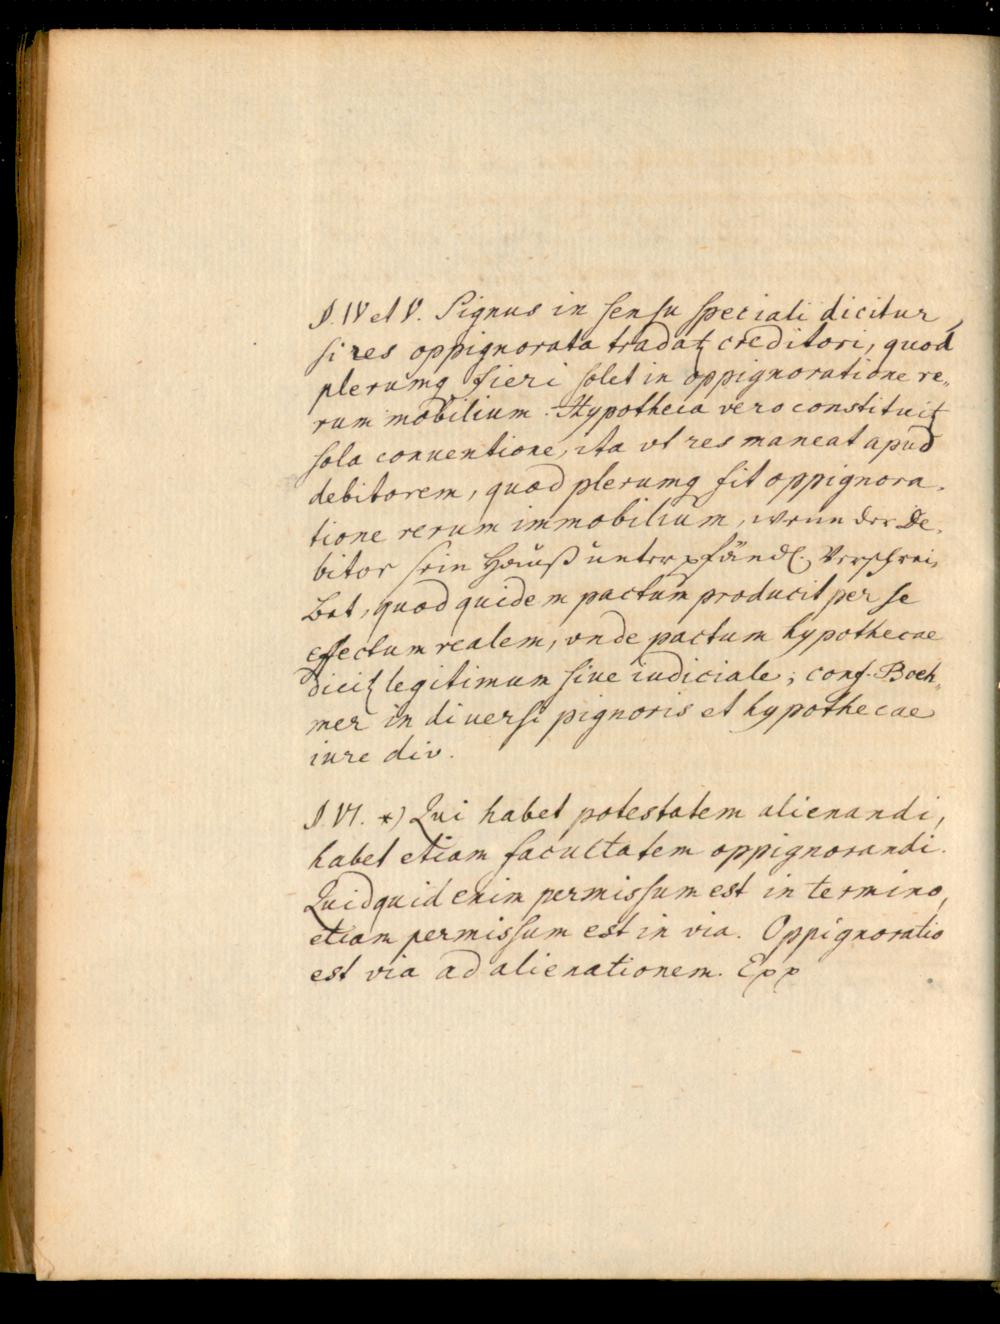 §. IV et V. Pignus in sensu speciali dicitur,
si res oppignorata tradatꝶ creditori, quod
plerumq fieri solet in oppignoratione re„
rum mobilium. Hypotheca vero constituitꝶ
sola conuentione, ita vt res maneat apud
debitorem, quod plerumq fit oppignora„
tione rerum immobilium, wenn der De„
bitor sein Hauß unterpfändl. verschrei„
bet, quod quidem pactum producit per se
effectum realem, vnde pactum hypothecae
dicitꝶ legitimum siue iudiciale; conf. Boeh„
mer in diversi pignoris et hypothecae
iure div.
§. VI. *) Qui habet potestatem alienandi,
habet etiam facultatem oppignorandi.
Quidquid enim permissum est in termino,
etiam permissum est in via. Oppignoratio
est via ad alienationem. Epp